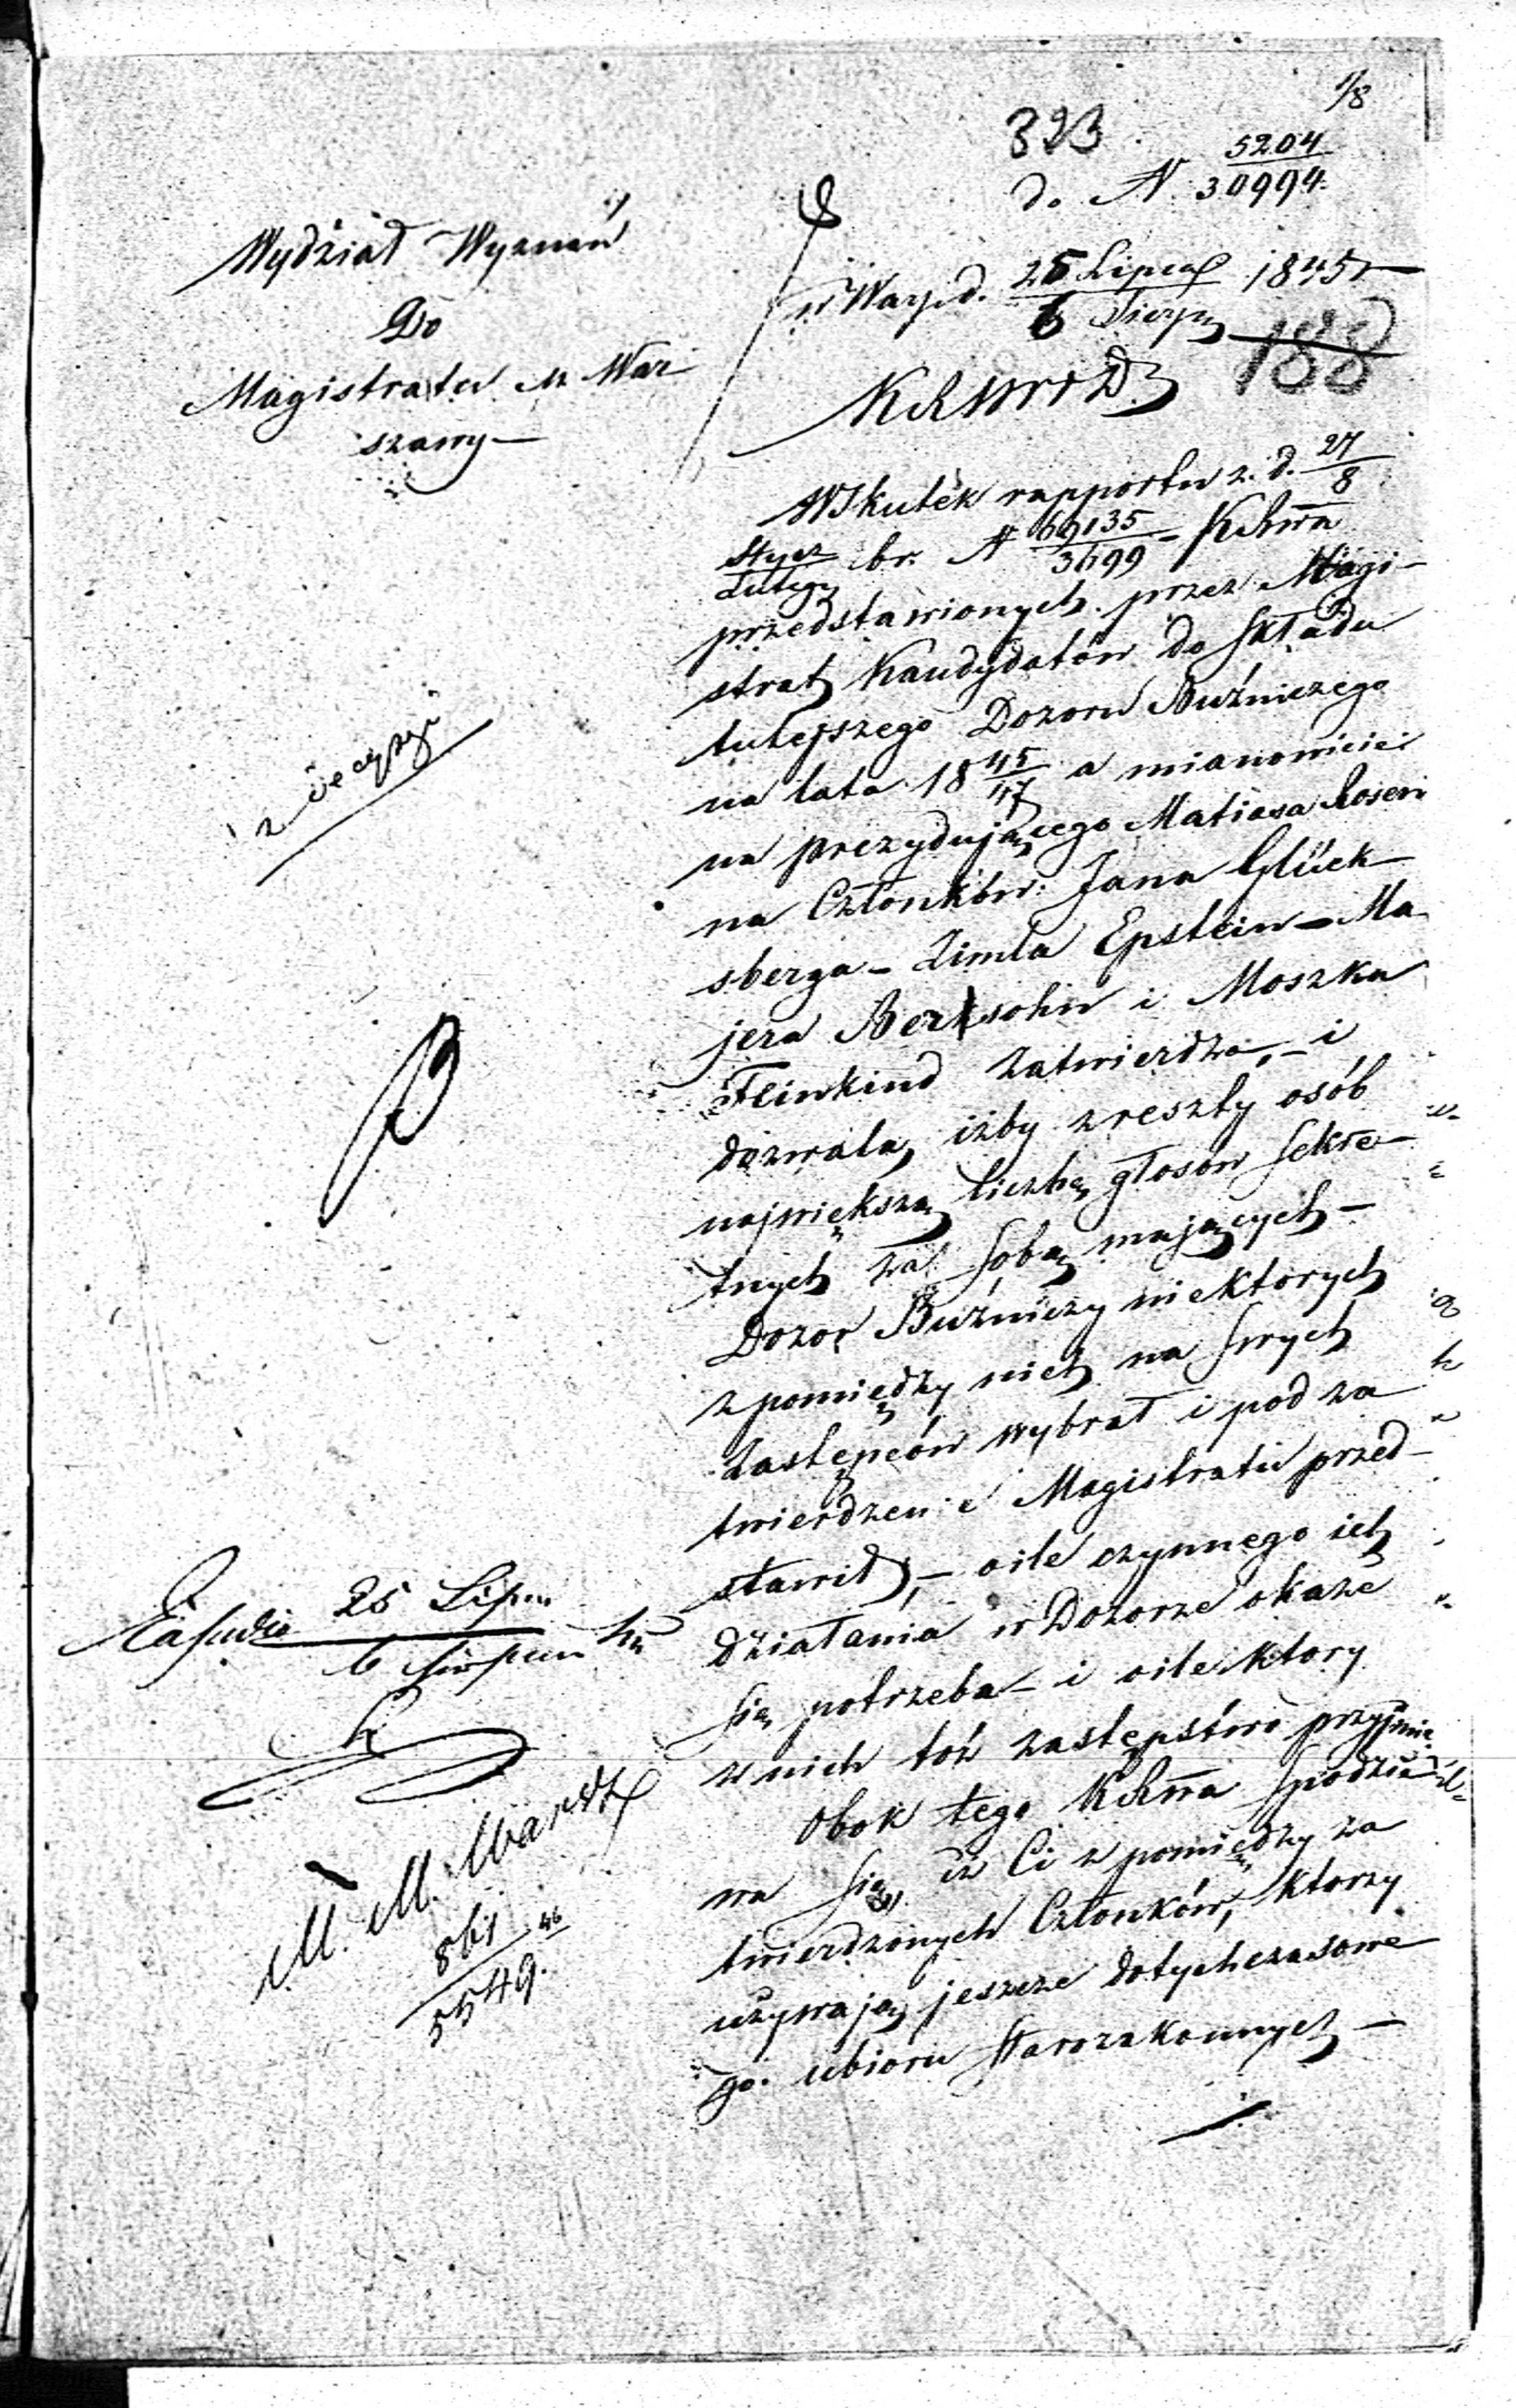 1/8
323
5204
do N 30994.
Wydział Wyznań
Do
Magistratu M. War
szawy —
w Warsz. d. 25 Lipca 1845 r
6 Sierp
188
KRSWiD.
z decyzyi
W skutek rapportu z. d. 27/8
Stycz/Lutego br. N 69135/3699 - KRSwa
przedstawionych przez Magi-
strat Kandydatów do składu
tutejszego Dozoru Bużniczego
na lata 18 45/47 a mianowicie
na prezydującego Matiasa Rosen
na Członków: Jana Glück-
sberga - Zimla Epstein - Ma
jera Bersohn i Moszka
Feinkind zatwierdza, - i
dozwala, iżby z reszty osób
największą liczbę głosów sekre-
tnych za sobą mających -
Dozor Bużniczy niektorych
z pomiędzy nich na swych
Zastępców wybrał i pod za
twierdzenie Magistratu przed-
stawił, - o ile czynnego ich
działania w Dozorze okaże
się potrzeba - i o ile ktory
z nich toż zastępstwo przyjmie.
Obok tego KRSwa spodzie
wa się, iż Ci z pomiędzy za
twierdzonych Członków, ktorzy
używają jeszcze dotychczasowe
go ubioru Starozakonnych -
25 Lipca
6 Sierpnia
M. M.
861/5549. 46